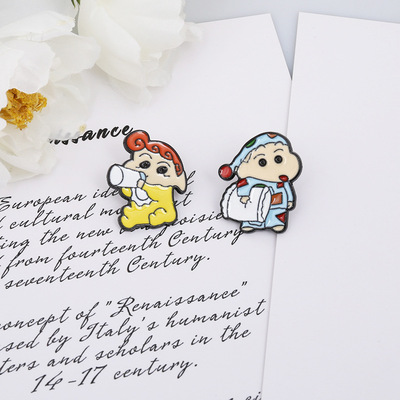 European
cultural
the new
from fourteenth Century
seventeenth Century.
concept of "Renaissance"
by Italy's humanist
and scholars in the
14-17 century.